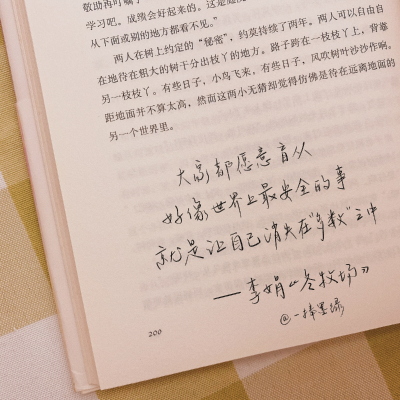 敬助再叮嘱了
学习吧。成绩会好起来的。这是
从下面或别的地方都看不见。”
两人在树上约定的“秘密”，约莫持续了两年。两人可以自由自
在地待在粗大的树干分出枝丫的地方。路子跨在一枝枝丫上，背靠
另一枝枝丫。有些日子，小鸟飞来，有些日子，风吹树叶沙沙作响。
距地面并不算太高，然而这两小无猜却觉得仿佛是待在远离地面的
另一个世界里。
大家都愿意盲从
好像世界上最安全的事
就是让自己消失在“多数”之中
——李娟《冬牧场》
@一捧墨绿
200